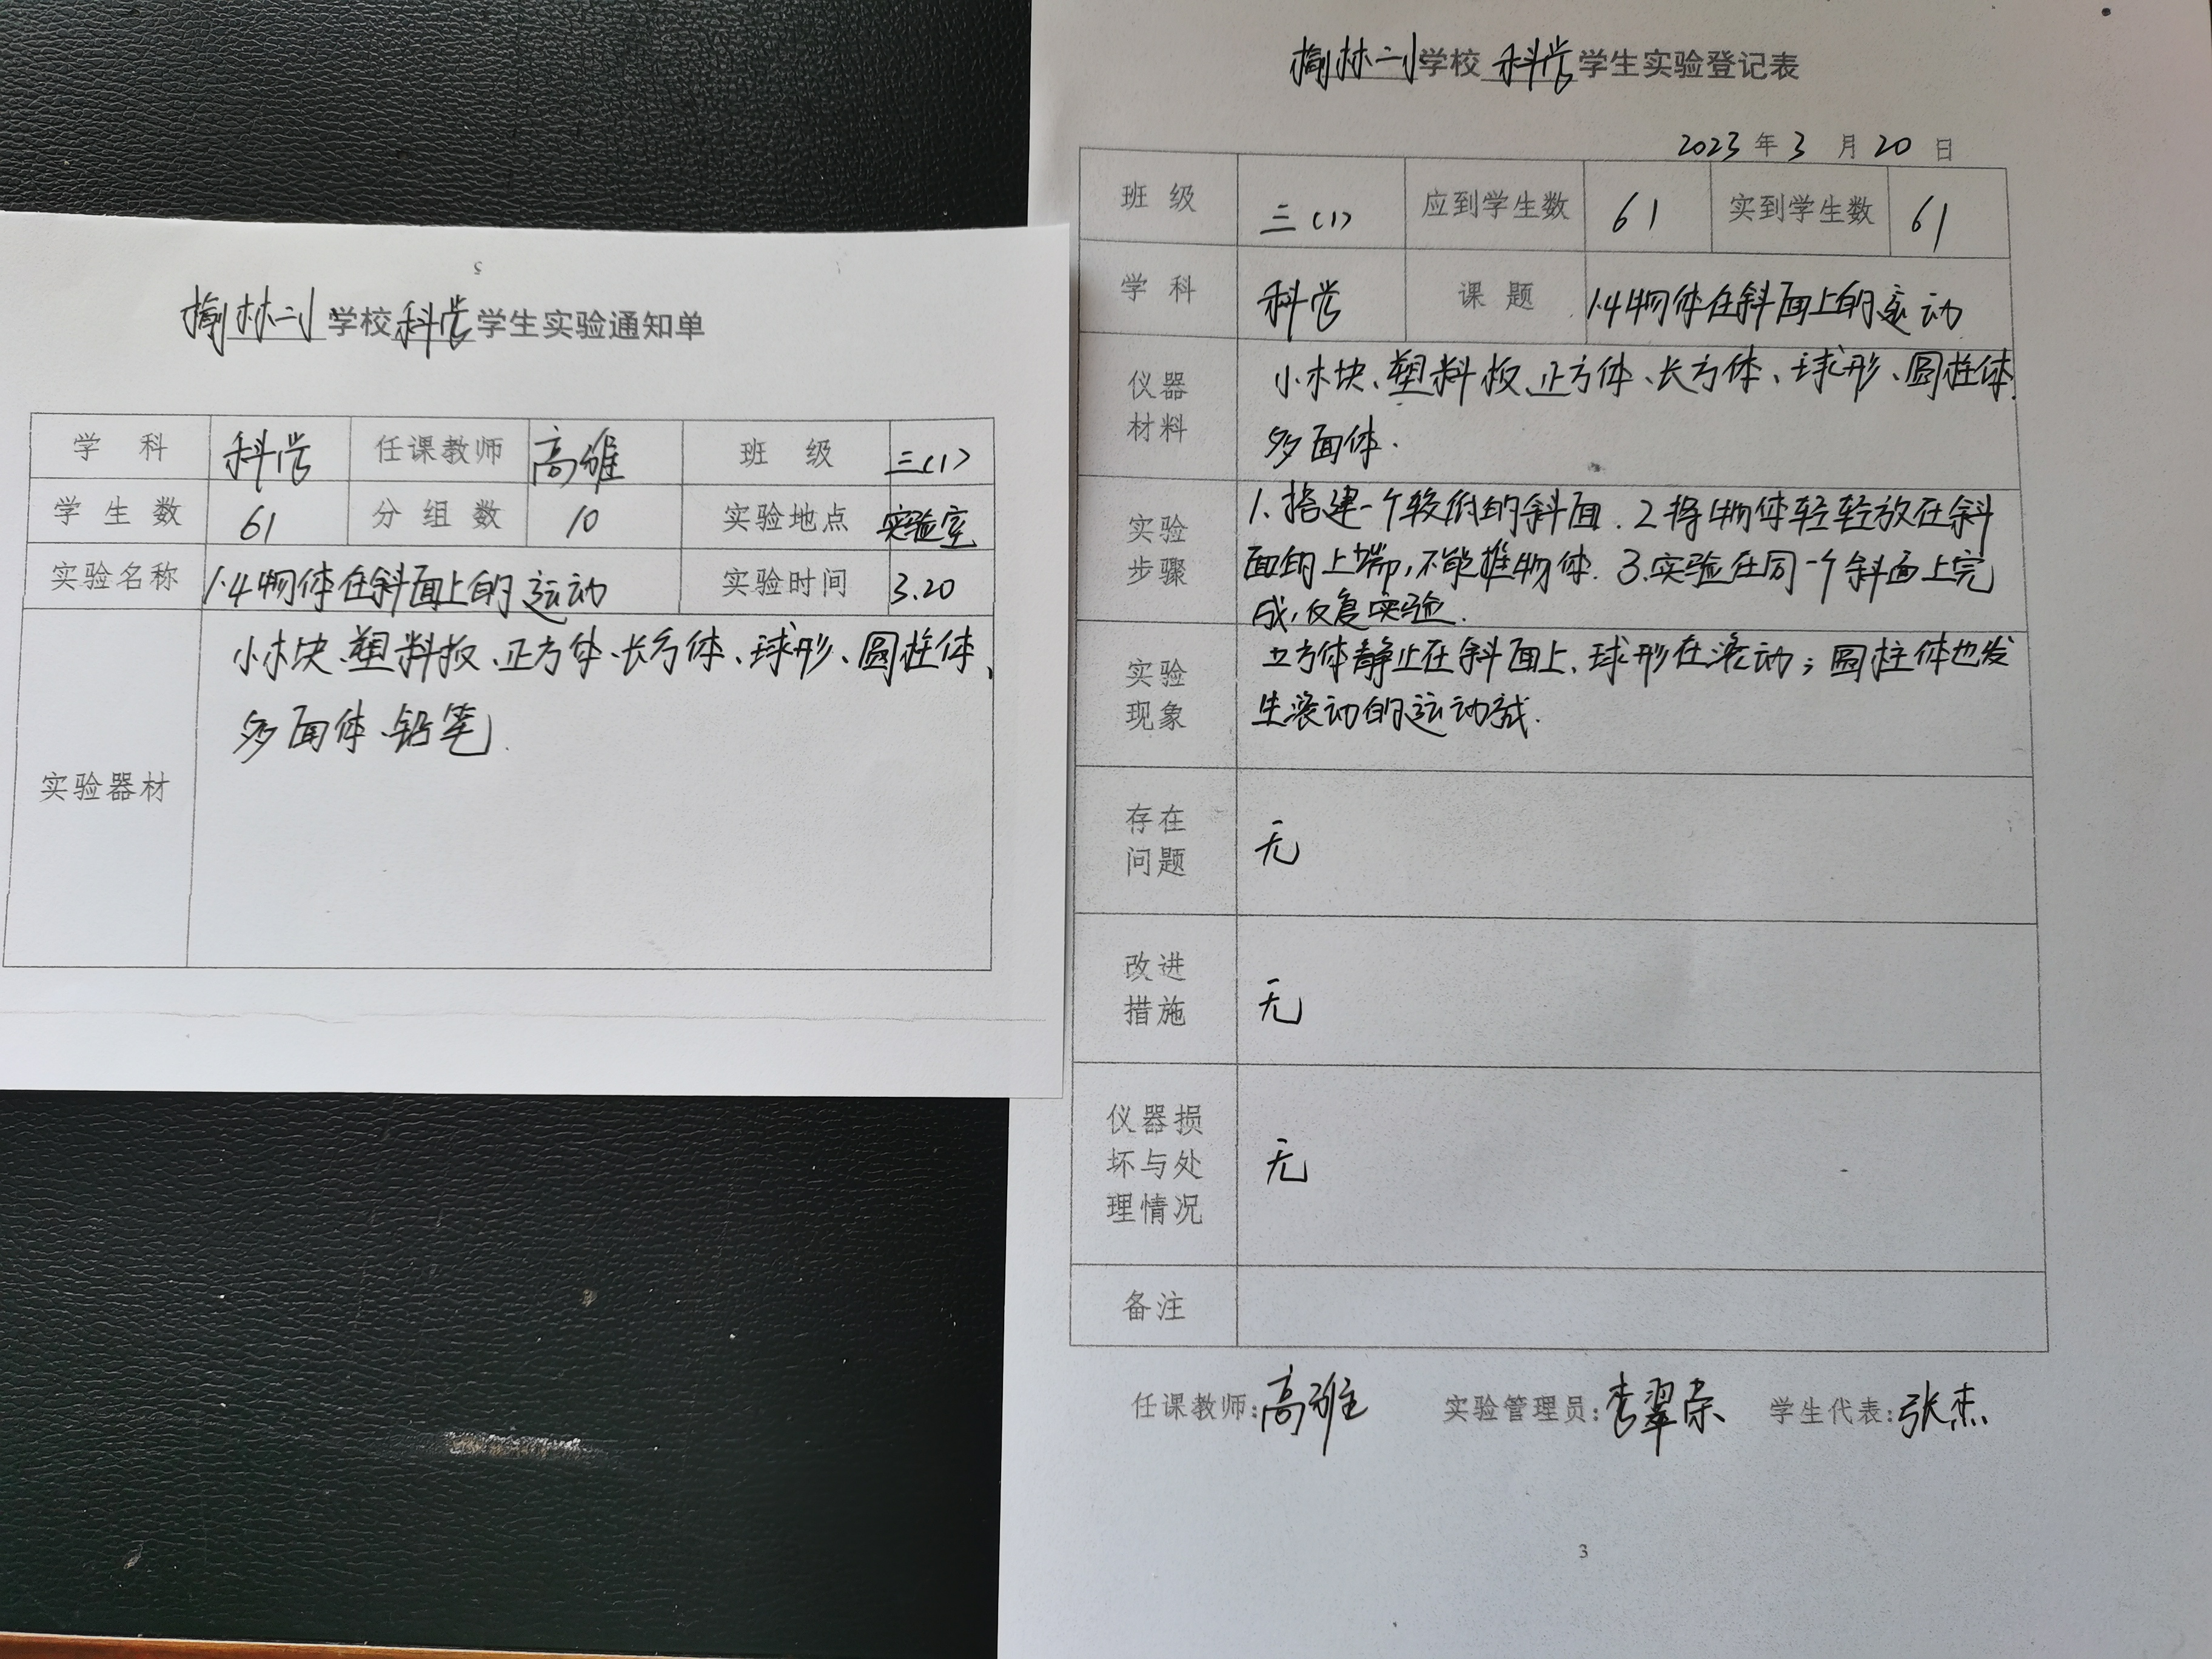 榆林二小学校科学学生实验通知单
学科 科学 任课教师 高雅 班级 三(1)
学生数 61 分组数 10 实验地点 实验室
实验名称 1.4物体在斜面上的运动 实验时间 3.20
实验器材
小木块、塑料板、正方体、长方体、球形、圆柱体、
多面体、铅笔.
榆林二小学校科学学生实验登记表
2023年3月20日
班级 三(1) 应到学生数 61 实到学生数 61
学科 科学 课题 1.4物体在斜面上的运动
仪器
材料
小木块、塑料板、正方体、长方体、球形、圆柱体、
多面体.
实验
步骤
1. 搭建一个较低的斜面. 2 将物体轻轻放在斜
面的上端,不能推物体. 3.实验在同一个斜面上完
成,反复实验.
实验
现象
立方体静止在斜面上,球形在滚动;圆柱体也发
生滚动的运动
存在
问题
无
改进
措施
无
仪器损
坏与处
理情况
无
备注
任课教师:高雅 实验管理员:李翠荣 学生代表:张杰
3